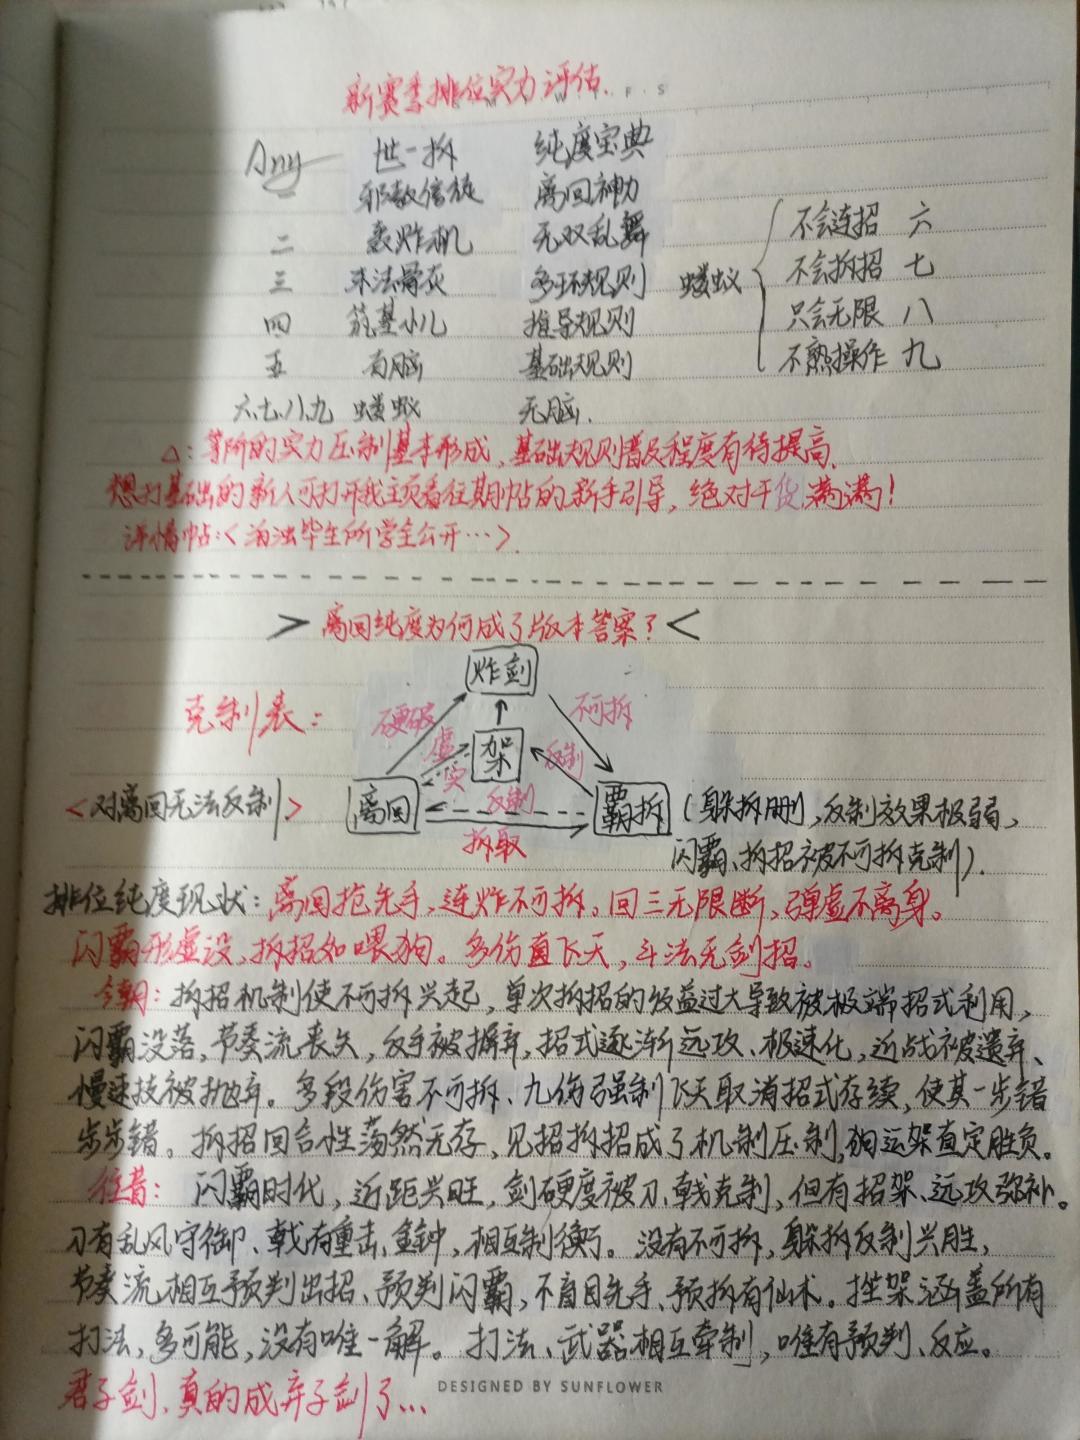 新赛季排位实力评估.
F S
Any 世一拆 纯度宝典
一 邪教信徒 离回神力
二 轰炸机 无双乱舞
三 末法骨灰 多环规则
四 筑基小儿 推导规则
五 有脑 基础规则
六、七、八、九 蝼蚁 无脑.
蝼蚁
不会连招 六
不会拆招 七
只会无限 八
不熟操作 九
△:等阶的实力压制基本形成,基础规则普及程度有待提高.
想打基础的新人可打开我主页看往期帖的新手引导,绝对干货满满!
详情帖:<泊浊毕生所学全公开…>.
>离回纯度为何成了版本答案?<
克制表:
炸剑
硬破 不可拆
虚实 架 反制
<对离回无法反制> 离回 反制 霸拆 (躲拆删,反制效果极弱,
拆取 闪霸、拆招被不可拆克制).
排位纯度现状:离回抢先手,连炸不可拆。回三无限断,弹虚不离身。
闪霸形虚设,拆招如喂狗。多伤直飞天,斗法无剑招。
今朝:拆招机制使不可拆兴起,单次拆招的收益过大导致被极端招式利用,
闪霸没落,节奏流丧失,反手被摒弃,招式逐渐远攻、极速化,近战被遗弃、
慢速技被抛弃。多段伤害不可拆、九伤强制飞天取消招式存续,使其一步错
步步错。拆招回合性荡然无存,见招拆招成了机制压制,狗运架直定胜负。
往昔:闪霸时代,近距兴旺,剑硬度被刀、戟克制,但有招架、远攻弥补。
刀有乱风守御、戟有重击、金钟,相互制衡。没有不可拆,躲拆反制兴胜,
节奏流相互预判出招、预判闪霸,不盲目先手、预拆有仙术。挫架涵盖所有
打法,多可能,没有唯一解。打法、武器相互牵制,唯有预判、反应。
君子剑,真的成弃子剑了…
DESIGNED BY SUNFLOWER